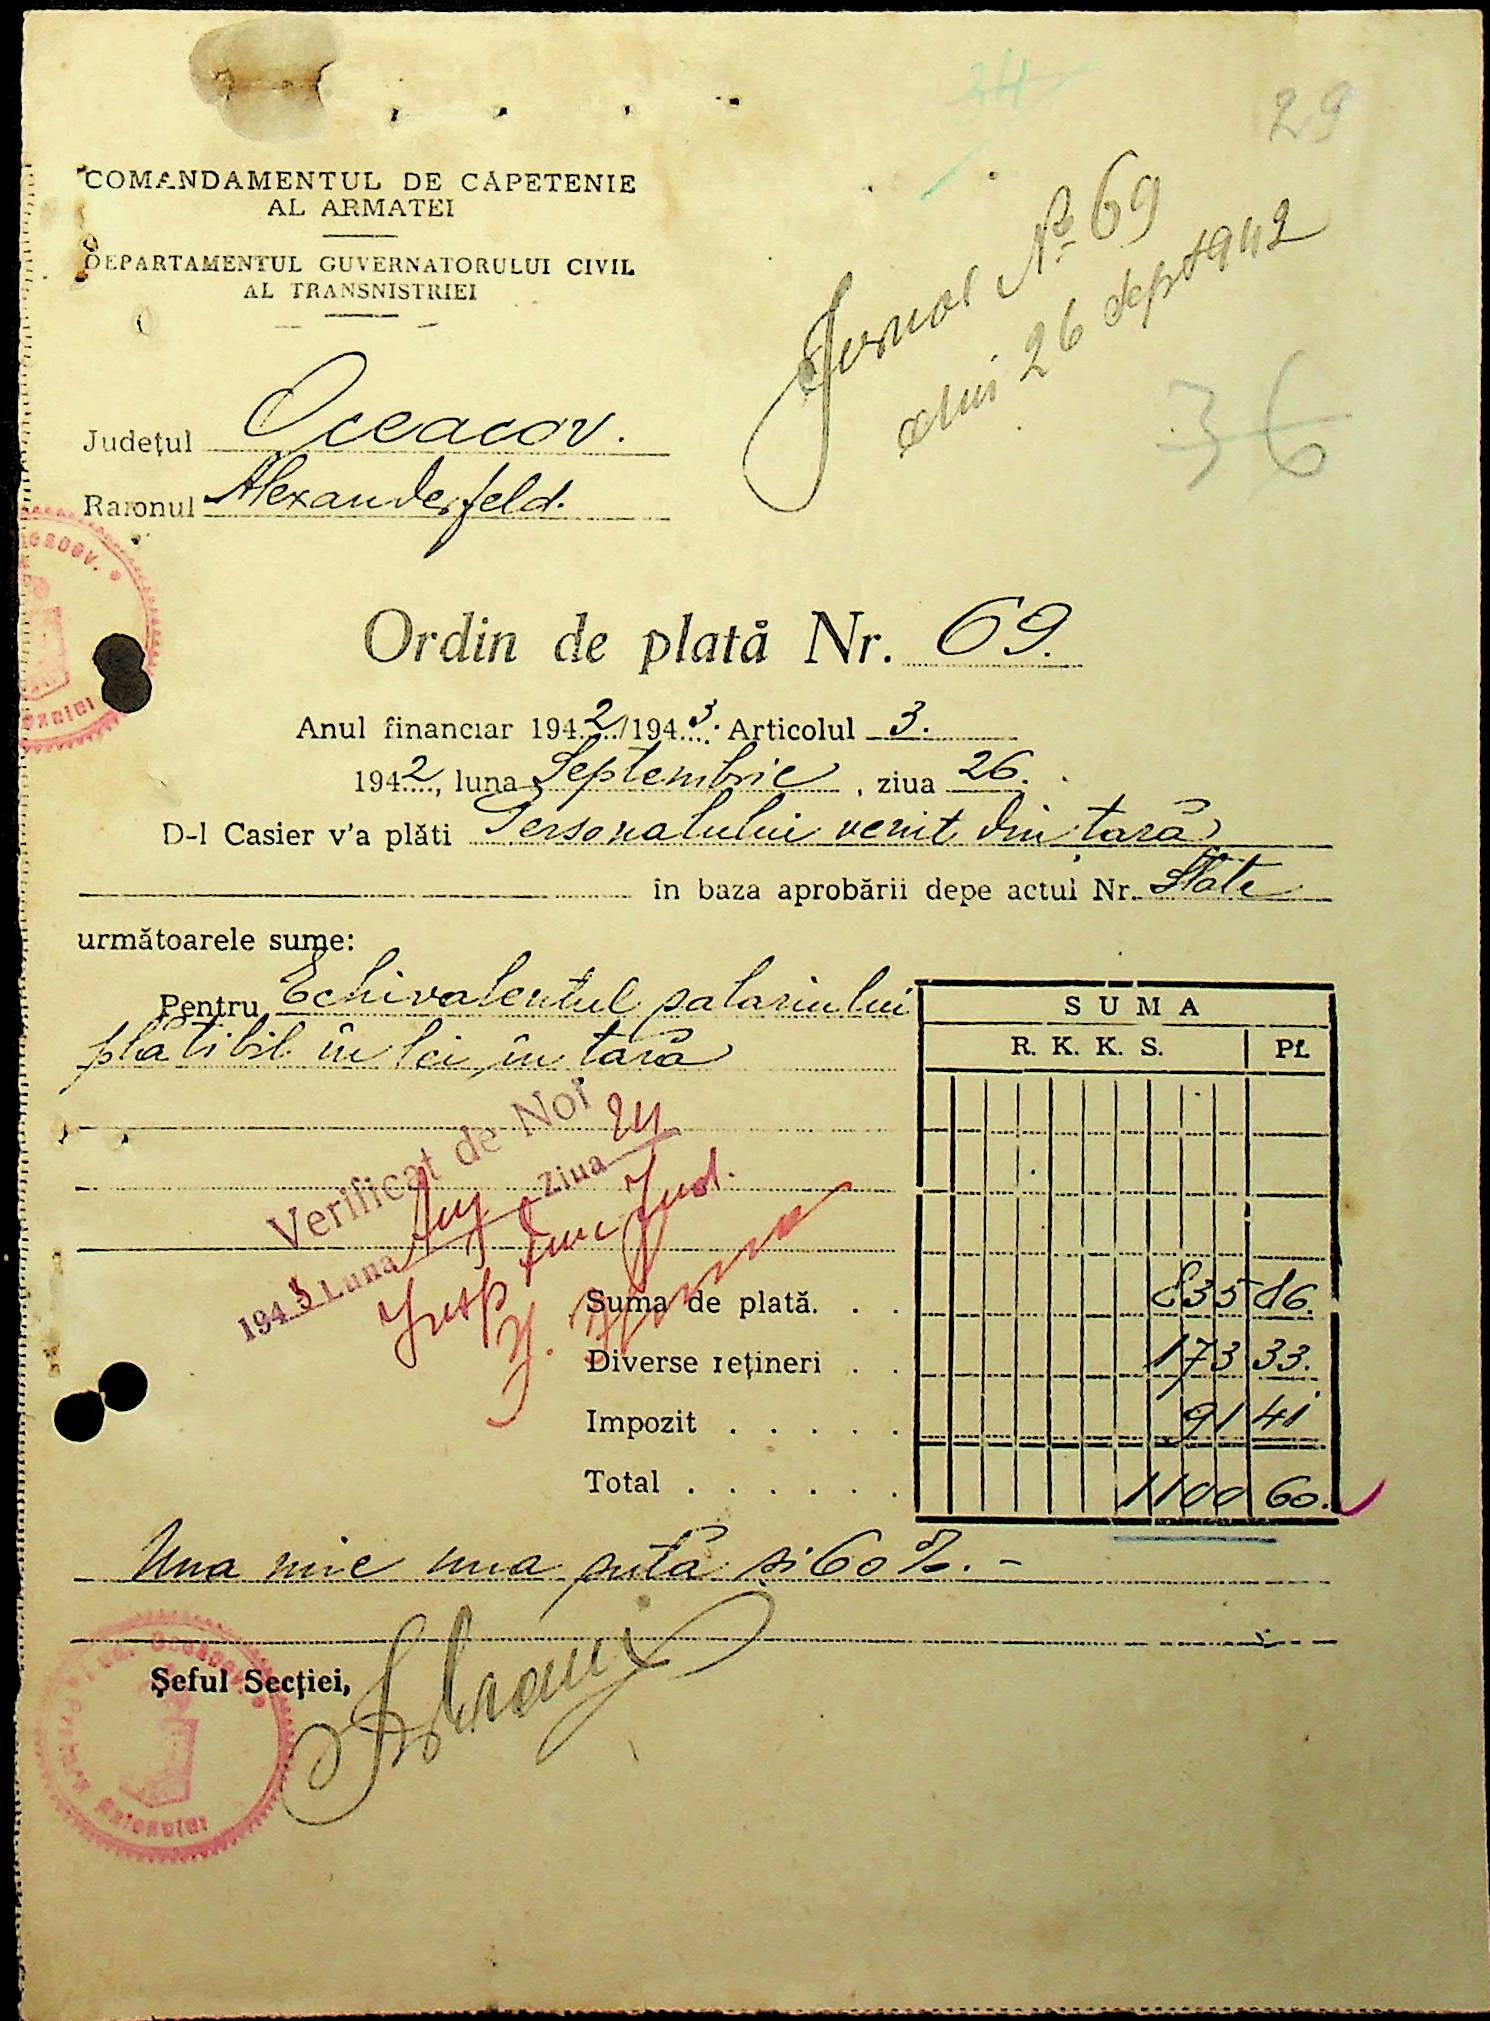 34
29
COMANDAMENTUL DE CĂPETENIE
AL ARMATEI
DEPARTAMENTUL GUVERNATORULUI CIVIL
AL TRANSNISTRIEI
Jurnal No 69
din 26 sept 1942
36
Județul Oceacov.
Raionul Alexanderfeld.
Ordin de plată Nr. 69.
Anul financiar 1942/1943. Articolul 3.
1942, luna Septembrie, ziua 26.
D-l Casier v'a plăti Personalului venit din țară
în baza aprobării depe actul Nr. State
următoarele sume:
Pentru Echivalentul salariului
plătibil în lei în țară
SUMA
R. K. K. S. Pf.
Verificat de Noi
1943 Luna Aug Ziua 24
Insp Jud.
Suma de plată. . . 835 86.
Diverse rețineri . . 173 33.
Impozit . . . . . 91 41
Total . . . . . . 1100 60.
Una mie una sută și 60 %. -
Șeful Secției,
Raionului